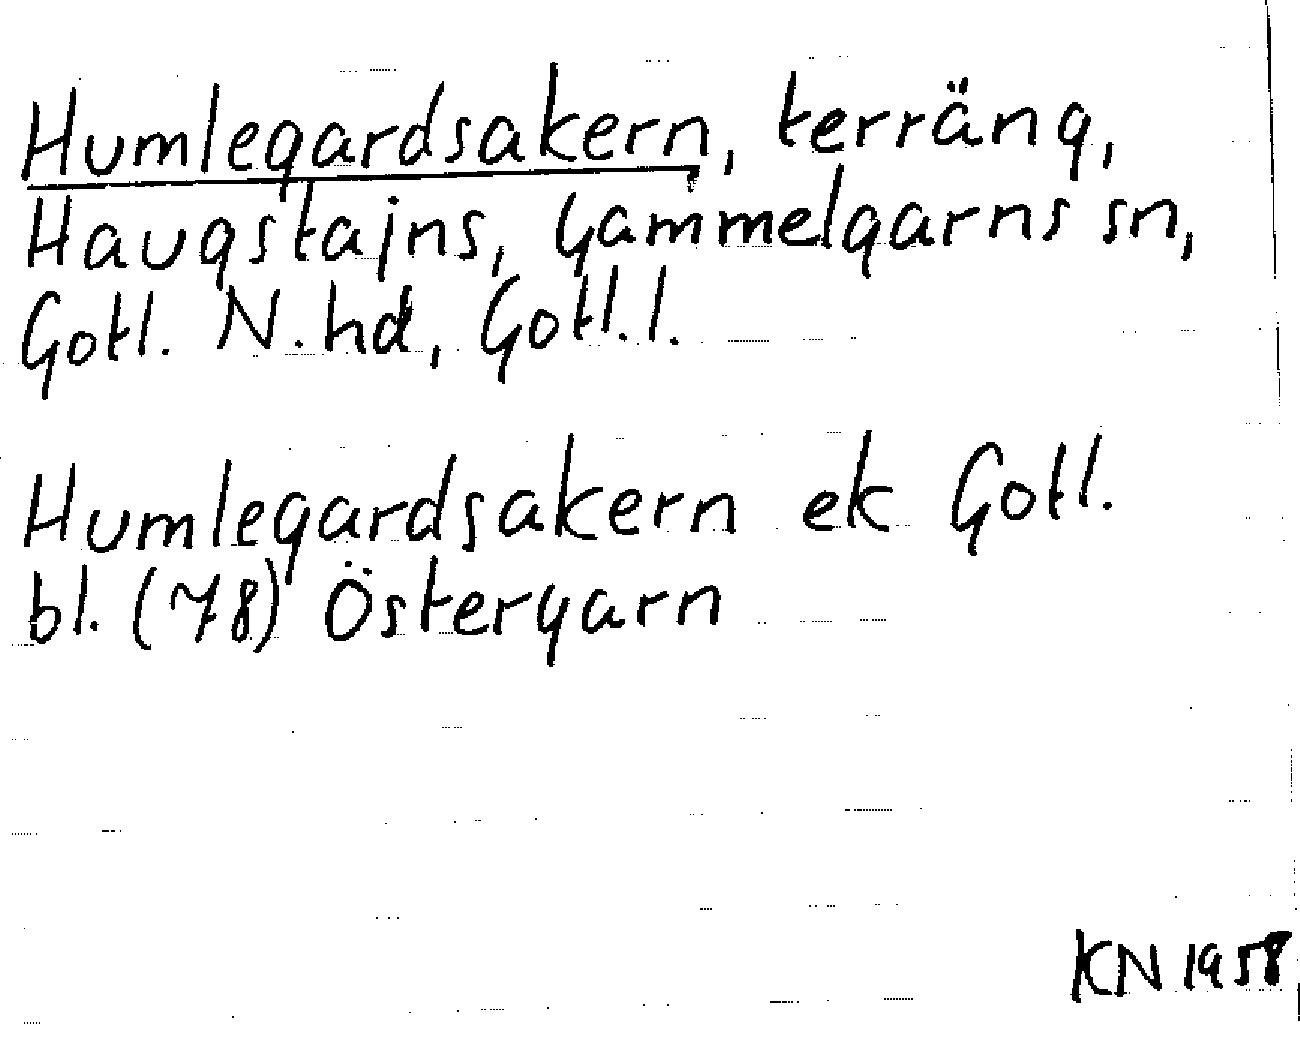 Humlegardsakern, terräng,
Haugstajns, Gammelgarns sn,
Gotl. N. hd, Gotl. l.
Humlegardsakern ek Gotl.
bl. (78) Östergarn
KN 1958